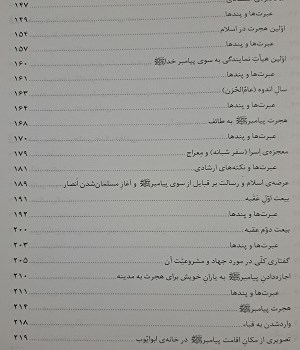 ۱۴۷
عبرت‌ها و پندها ۱۴۹
اوّلین هجرت در اسلام ۱۵۴
عبرت‌ها و پندها ۱۵۷
اوّلین هیأت نمایندگی به سوی پیامبر خداﷺ ۱۶۰
عبرت‌ها و پندها ۱۶۱
سال اندوه (عامُ‌الحُزن) ۱۶۳
عبرت‌ها و پندها ۱۶۴
هجرت پیامبرﷺ به طائف ۱۶۸
عبرت‌ها و پندها ۱۷۰
معجزه‌ی اِسرا (سفر شبانه) و مِعراج ۱۷۹
عبرت‌ها و نکته‌های ارشادی ۱۸۱
عرضه‌ی اسلام و رسالت بر قبایل از سوی پیامبرﷺ و آغازِ مسلمان‌شدن اَنصار ۱۸۹
بیعت اوّل عقبه ۱۹۱
عبرت‌ها و پندها ۱۹۲
بیعت دوّم عقبه ۲۰۰
عبرت‌ها و پندها ۲۰۳
گفتاری کلّی در مورد جهاد و مشروعیّت آن ۲۰۵
اجازه‌دادنِ پیامبرﷺ به یارانِ خویش برای هجرت به مدینه ۲۱۰
عبرت‌ها و پندها ۲۱۱
هجرت پیامبرﷺ ۲۱۴
واردشدن به قُباء ۲۱۸
تصویری از مکانِ اقامت پیامبرﷺ در خانه‌ی ابوایّوب ۲۱۹